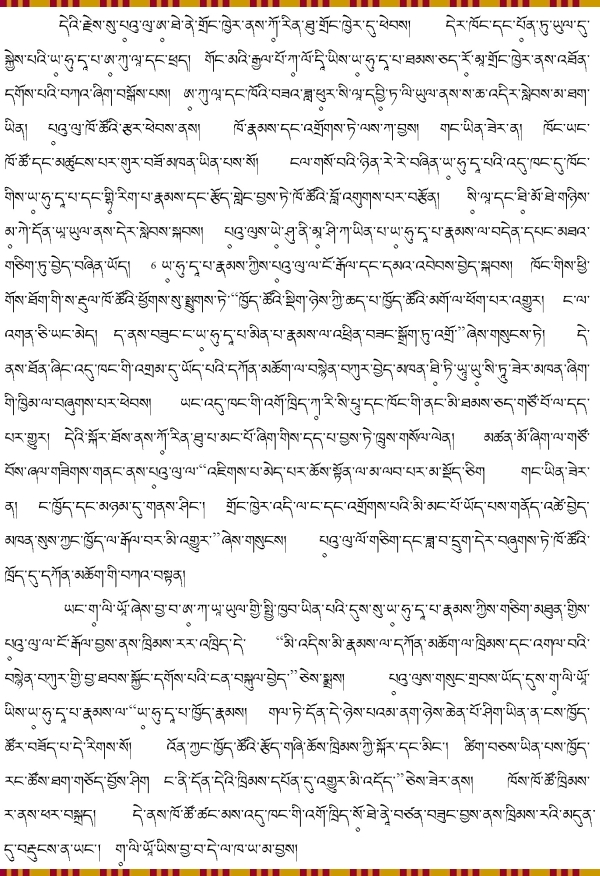 དེའི་རྗེས་སུ་པཱའུ་ལུ་ཨ་ཐེ་ནེ་གྲོང་ཁྱེར་ནས་ཀོ་རིན་ཐུ་གྲོང་ཁྱེར་དུ་ཕེབས། དེར་ཁོང་དང་པོན་ཏུ་ཡུལ་དུ་
སྐྱེས་པའི་ཡ་ཧུ་དཱ་པ་ཨ་ཀུ་ལཱ་དང་ཕྲད། གོང་མའི་རྒྱལ་པོ་ཀ་ལོ་དཱི་ཡིས་ཡ་ཧུ་དཱ་པ་ཐམས་ཅད་རོ་མཱ་གྲོང་ཁྱེར་ནས་འཐོན་
དགོས་པའི་བཀའ་ཞིག་བསྒོས་པས། ཨ་ཀུ་ལཱ་དང་ཁོའི་བཟའ་ཟླ་ཕུར་སི་ལཱ་དབྱི་ཏ་ལི་ཡུལ་ནས་ས་ཆ་འདིར་སླེབས་མ་ཐག་
ཡིན། པཱའུ་ལུ་ཁོ་ཚོའི་རྩར་ཕེབས་ནས། ཁོ་རྣམས་དང་འགྲོགས་ཏེ་ལས་ཀ་བྱས། གང་ཡིན་ཟེར་ན། ཁོང་ཡང་
ཁོ་ཚོ་དང་མཚུངས་པར་གུར་བཟོ་མཁན་ཡིན་པས་སོ། ངལ་གསོ་བའི་ཉིན་རེ་རེ་བཞིན་ཡ་ཧུ་དཱ་པའི་འདུ་ཁང་དུ་ཁོང་
གིས་ཡ་ཧུ་དཱ་པ་དང་གྷྲི་རིག་པ་རྣམས་དང་རྩོད་གླེང་བྱས་ཏེ་ཁོ་ཚོའི་བློ་འགུགས་པར་བརྩོན། སི་ལཱ་དང་ཐི་མོ་ཐེ་གཉིས་
མ་ཀེ་དོན་ཡཱ་ཡུལ་ནས་དེར་སླེབས་སྐབས། པཱའུ་ལུས་ཡེ་ཤུ་ནི་མཱ་ཤི་ཀ་ཡིན་པ་ཡ་ཧུ་དཱ་པ་རྣམས་ལ་བདེན་དཔང་མཐའ་
གཅིག་ཏུ་བྱེད་བཞིན་ཡོད། 6 ཡ་ཧུ་དཱ་པ་རྣམས་ཀྱིས་པཱའུ་ལུ་ལ་ངོ་རྒོལ་དང་དམའ་འབེབས་བྱེད་སྐབས། ཁོང་གིས་ཕྱི་
གོས་ཐོག་གི་ས་རྡུལ་ཁོ་ཚོའི་ཕྱོགས་སུ་སྤྲུགས་ཏེ་“ཁྱོད་ཚོའི་སྡིག་ཉེས་ཀྱི་ཆད་པ་ཁྱོད་ཚོའི་མགོ་ལ་ཕོག་པར་འགྱུར། ང་ལ་
འགན་ཅི་ཡང་མེད། ད་ནས་བཟུང་ང་ཡ་ཧུ་དཱ་པ་མིན་པ་རྣམས་ལ་འཕྲིན་བཟང་སྒྲོག་ཏུ་འགྲོ་”ཞེས་གསུངས་ཏེ། དེ་
ནས་ཐོན་ཞིང་འདུ་ཁང་གི་འགྲམ་དུ་ཡོད་པའི་དཀོན་མཆོག་ལ་བསྙེན་བཀུར་བྱེད་མཁན་ཐི་ཏི་ཡཱུ་ཡུ་སི་ཏཱུ་ཟེར་མཁན་ཞིག་
གི་ཁྱིམ་ལ་བཞུགས་པར་ཕེབས། ཡང་འདུ་ཁང་གི་འགོ་ཁྲིད་ཀ་རི་སི་པཱུ་དང་ཁོང་གི་ནང་མི་ཐམས་ཅད་གཙོ་བོ་ལ་དད་
པར་གྱུར། དེའི་སྐོར་ཐོས་ནས་ཀོ་རིན་ཐུ་པ་མང་པོ་ཞིག་གིས་དད་པ་བྱས་ཏེ་ཁྲུས་གསོལ་ལེན། མཚན་མོ་ཞིག་ལ་གཙོ་
བོས་ཞལ་གཟིགས་གནང་ནས་པཱའུ་ལུ་ལ་“འཇིགས་པ་མེད་པར་ཆོས་སྟོན་ལ་མ་ལབ་པར་མ་སྡོད་ཅིག གང་ཡིན་ཟེར་
ན། ང་ཁྱོད་དང་མཉམ་དུ་གནས་ཤིང་། གྲོང་ཁྱེར་འདི་ལ་ང་དང་འགྲོགས་པའི་མི་མང་པོ་ཡོད་པས་གནོད་འཚེ་བྱེད་
མཁན་སུས་ཀྱང་ཁྱོད་ལ་རྒོལ་བར་མི་འགྱུར་”ཞེས་གསུངས། པཱའུ་ལུ་ལོ་གཅིག་དང་ཟླ་བ་དྲུག་དེར་བཞུགས་ཏེ་ཁོ་ཚོའི་
ཁྲོད་དུ་དཀོན་མཆོག་གི་བཀའ་བསྟན།
ཡང་ག་ལི་ཡོ་ཞེས་བྱ་བ་ཨ་ཀ་ཡཱ་ཡུལ་གྱི་སྤྱི་ཁྱབ་ཡིན་པའི་དུས་སུ་ཡ་ཧུ་དཱ་པ་རྣམས་ཀྱིས་གཅིག་མཐུན་གྱིས་
པཱའུ་ལུ་ལ་ངོ་རྒོལ་བྱས་ནས་ཁྲིམས་རར་འཁྲིད་དེ་ “མི་འདིས་མི་རྣམས་ལ་དཀོན་མཆོག་ལ་ཁྲིམས་དང་འགལ་བའི་
བསྙེན་བཀུར་གྱི་བྱ་ཐབས་སྐྱོང་དགོས་པའི་ངན་བསྐུལ་བྱེད་”ཅེས་སྨྲས། པཱའུ་ལུས་གསུང་གྲབས་ཡོད་དུས་ག་ལི་ཡོ་
ཡིས་ཡ་ཧུ་དཱ་པ་རྣམས་ལ་“ཡ་ཧུ་དཱ་པ་ཁྱོད་རྣམས། གལ་ཏེ་དོན་དེ་ཉེས་པའམ་ནག་ཉེས་ཆེན་པོ་ཤིག་ཡིན་ན་ངས་ཁྱོད་
ཚོར་བཟོད་པ་དེ་རིགས་སོ། འོན་ཀྱང་ཁྱོད་ཚོའི་རྩོད་གཞི་ཆོས་ཁྲིམས་ཀྱི་སྐོར་དང་མིང་། ཚིག་བཅས་ཡིན་པས་ཁྱོད་
རང་ཚོས་ཐག་གཅོད་བྱོས་ཤིག ང་ནི་དོན་དེའི་ཁྲིམས་དཔོན་དུ་འགྱུར་མི་འདོད་”ཅེས་ཟེར་ནས། ཁོས་ཁོ་ཚོ་ཁྲིམས་
ར་ནས་ཕར་བསྐྲད། དེ་ནས་ཁོ་ཚོ་ཚང་མས་འདུ་ཁང་གི་འགོ་ཁྲིད་སོ་ཐེ་ནཱེ་བཙན་བཟུང་བྱས་ནས་ཁྲིམས་རའི་མདུན་
དུ་བརྡུངས་ན་ཡང་། ག་ལི་ཡོ་ཡིས་བྱ་བ་དེ་ལ་ཁ་ཡ་མ་བྱས།